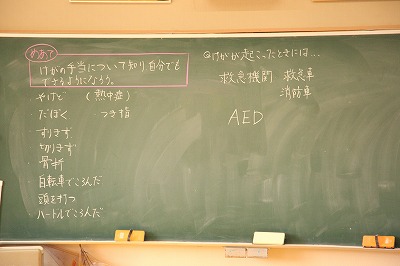 めあて
けがの手当について知り、自分でも
できるようになろう。
やけど （熱中症）
だぼく つき指
すりきず
切りきず
骨折
自転車でころんだ
頭を打つ
ハードルでころんだ
◎けがが起こったときには…
救急機関 救急車
消防車
AED